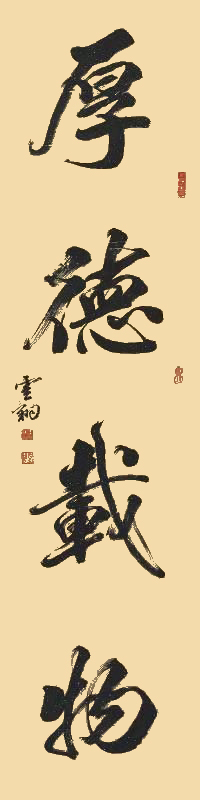 厚德載物
雲翔